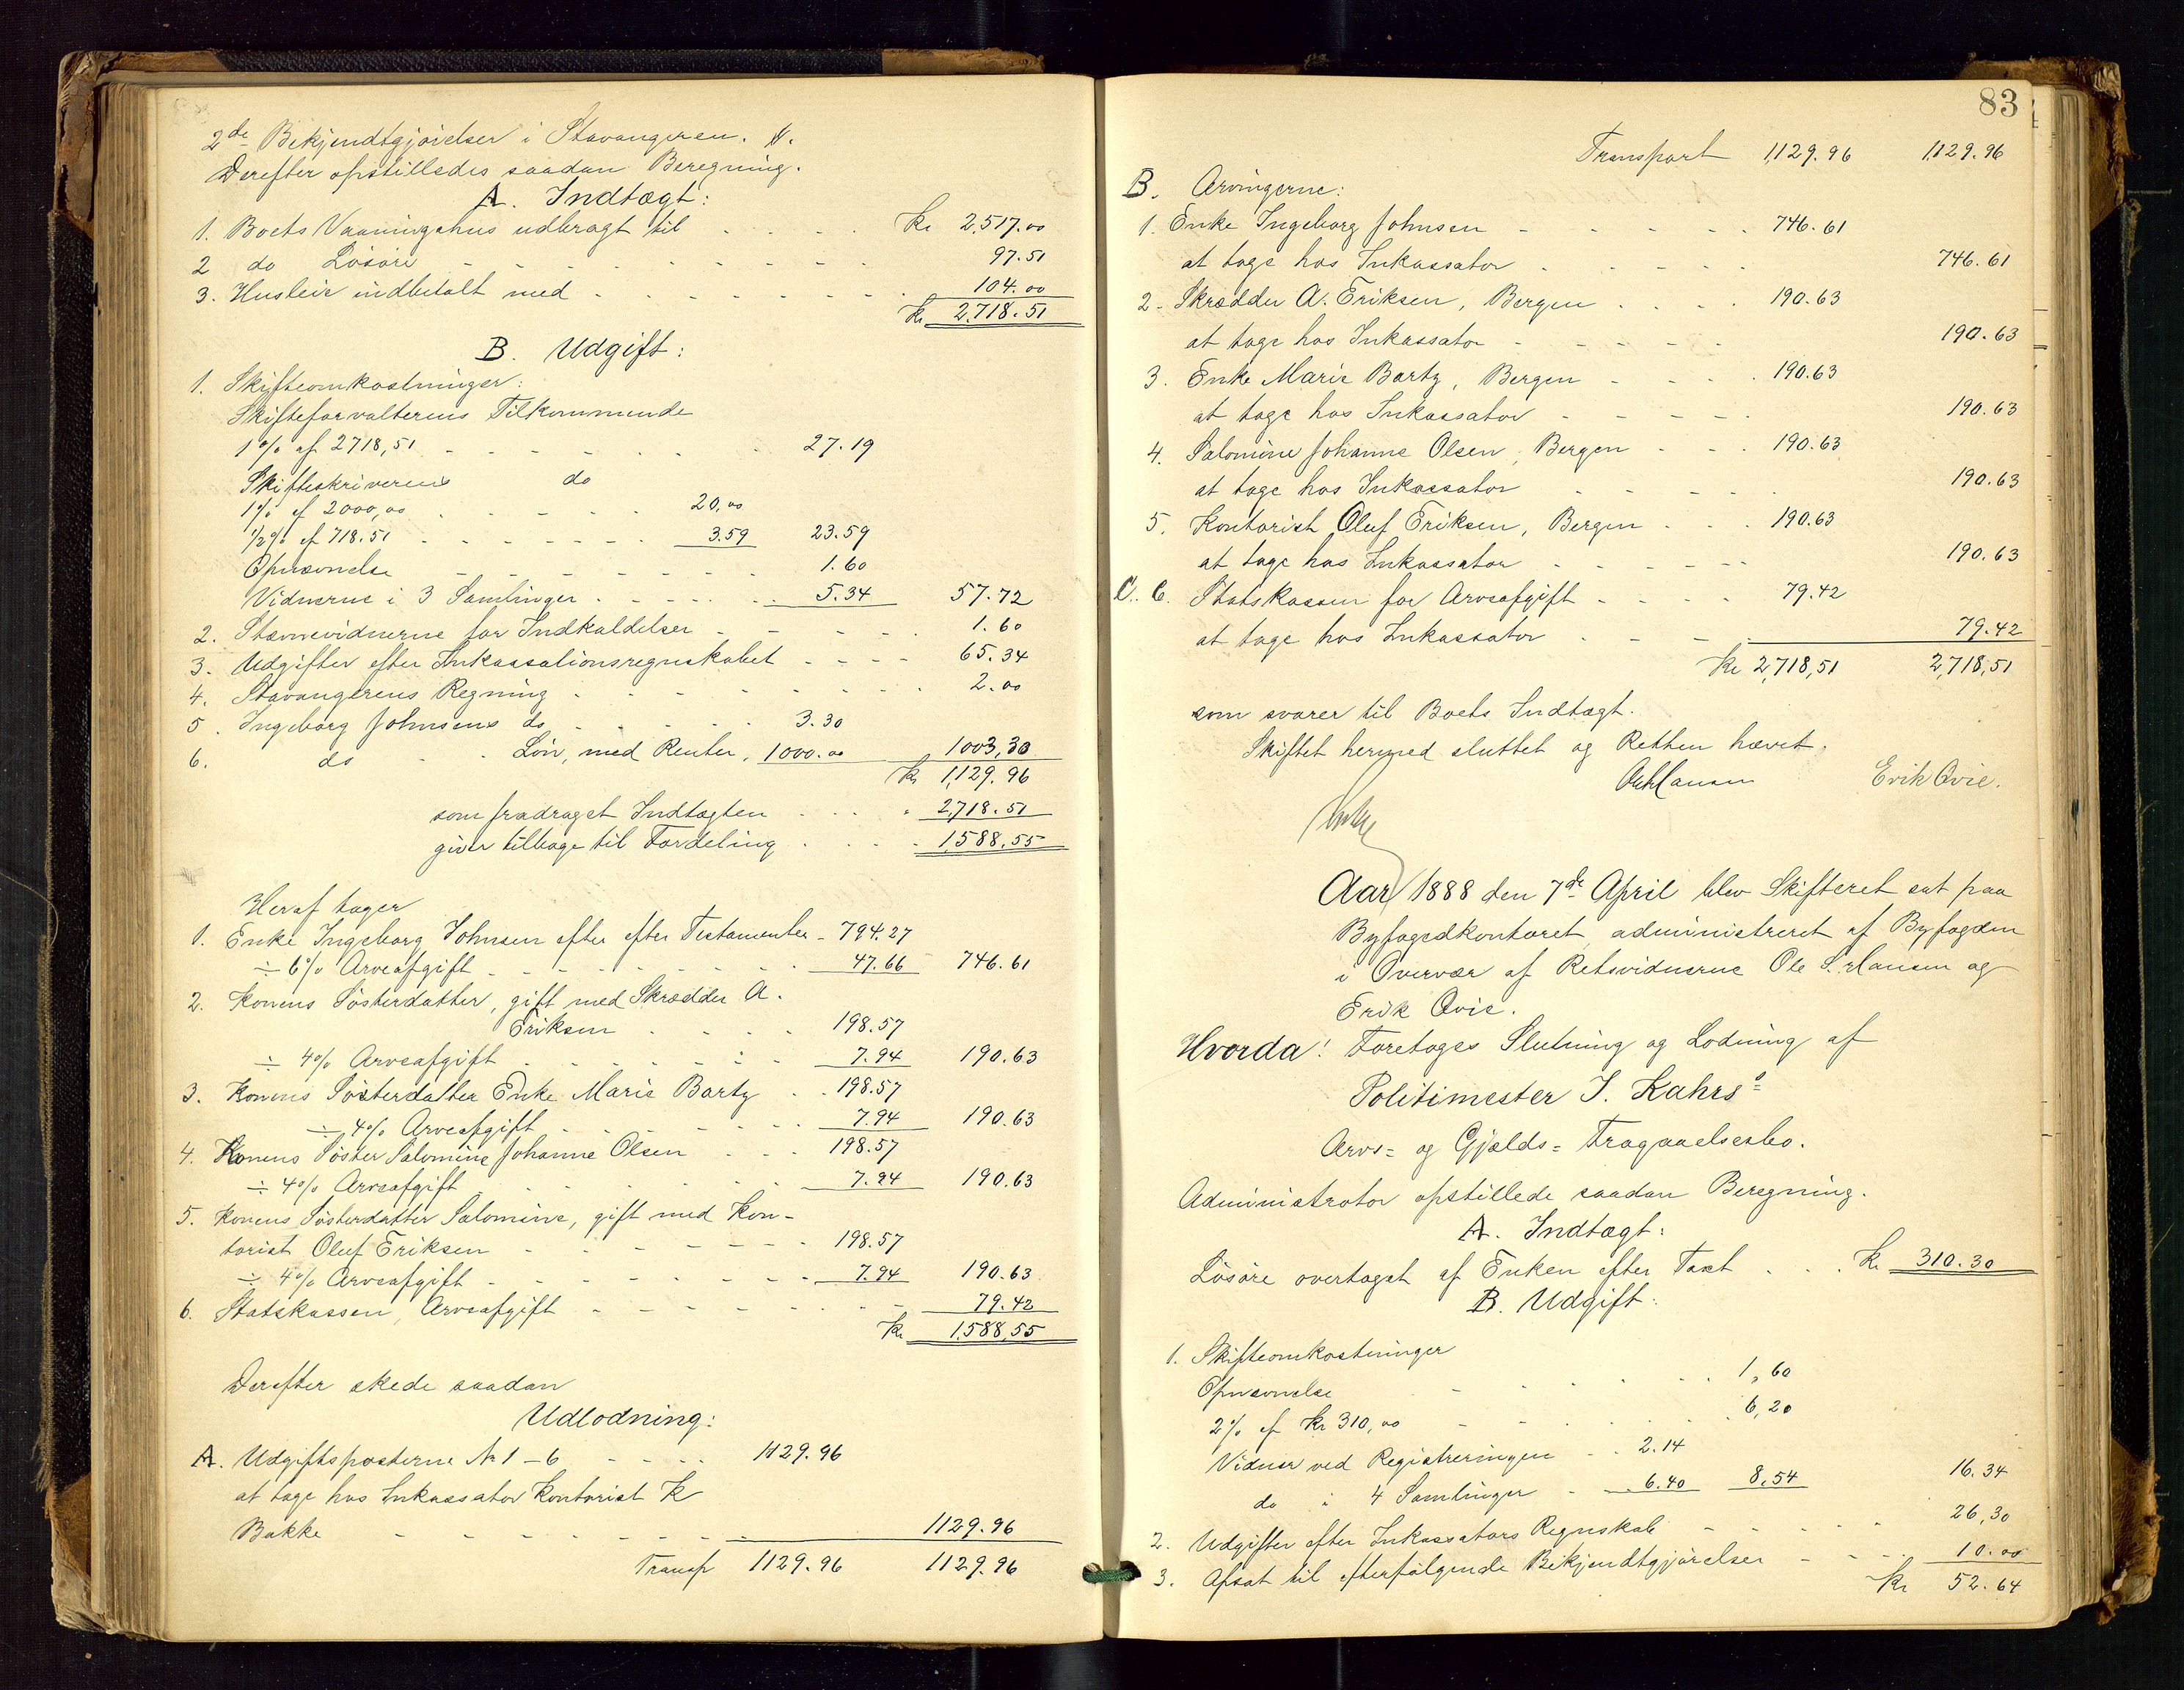 2de Bekjendtgjørelser i Stavangeren.
Derefter opstilledes saadan Beregning.
A. Indtægt:
1. Boets Vaaningshus udbragt til - - - Kr 2,517.00
2 do Løsøre - - - 97.51
3. Husleie indbetalt med - - - 104.00
Kr 2,718.51
B. Udgift:
1. Skifteomkostninger:
Skifteforvalterens Tilkommende
1% af 2718,51 - - - 27.19
Skifteskriverens do
1% af 2000,00 - - - 20,00
1/2% af 718.51 - - - 3.59 23.59
Opnævnelse - - - 1.60
Vidnerne i 3 Samlinger - - - 5.34 57.72
2. Stævnevidnerne for Indkaldelser - - - 1.60
3. Udgifter efter Inkassationsregnskabet - - - 65.34
4. Stavangerens Regning - - - 2.00
5. Ingeborg Johnsens do - - - 3.30
6. do - Løn, med Renter, 1000.00 1003,30
Kr 1,129.96
som fradraget Indtægten - - - 2,718.51
giver tilbage til Fordeling - - - 1,588.55
Heraf tager
1. Enke Ingeborg Johnsen efter efter Testamentet - 794.27
÷ 6% Arveafgift - - - 47.66 746.61
2. Konens Søsterdatter, gift med Skrædder A.
Eriksen - - - 198.57
÷ 4% Arveafgift - - - 7.94 190.63
3. Konens Søsterdatter Enke Marie Bartz - - 198.57
÷ 4% Arveafgift - - - 7.94 190.63
4. Konens Søster Salomine Johanne Olsen - - - 198.57
÷ 4% Arveafgift - - - 7.94 190.63
5. Konens Søsterdatter Salomine, gift med Kon-
torist Oluf Eriksen - - - 198.57
÷ 4% Arveafgift - - - 7.94 190.63
6. Statskassen, Arveafgift - - - 79.42
Kr 1,588,55
Derefter skede saadan
Udlodning:
A. Udgiftsposterne No 1-6 - - - 1129.96
at tage hos Inkassator Kontorist K
Bakke - - - 1129.96
Transp 1129.96 1129.96
83
Transport 1,129.96 1,129.96
B. Arvingerne:
1. Enke Ingeborg Johnsen - - - 746.61
at tage hos Inkassator - - - 746.61
2. Skrædder A. Eriksen, Bergen - - - 190.63
at tage hos Inkassator - - - 190.63
3. Enke Marie Bartz, Bergen - - - 190.63
at tage hos Inkassator - - - 190.63
4. Salomine Johanne Olsen, Bergen - - - 190.63
at tage hos Inkassator - - - 190.63
5. Kontorist Oluf Eriksen, Bergen - - - 190.63
at tage hos Inkassator - - - 190.63
C. 6. Statskassen for Arveafgift - - - 79.42
at tage hos Inkassator - - - 79.42
Kr 2,718,51 2,718,51
som svarer til Boets Indtægt.
Skiftet hermed sluttet og Retten hævet.
Hansen Erik Qvie.
Aar 1888 den 7de April blev Skifteret sat paa
Byfogedkontoret administreret af Byfogden
i Overvær af Retsvidnerne Ole S. Hansen og
Erik Qvie.
Hvorda! Foretoges Slutning og Lodning af
Politimester J. Kahrs'
Arvs- og Gjælds-Fragaaelsesbo.
Administrator opstillede saadan Beregning.
A. Indtægt:
Løsøre overtaget af Enken efter Taxt - - - Kr 310.30
B. Udgift:
1. Skifteomkostninger
Opnævnelse - - - 1,60
2% af Kr 310,00 - - - 6,20
Vidner ved Registreringen - - 2.14
do i 4 Samlinger - 6.40 8,54 16.34
2. Udgifter efter Inkassators Regnskab - - - 26,30
3. Afsat til efterfølgende Bekjendtgjørelser - - - 10.00
Kr 52.64